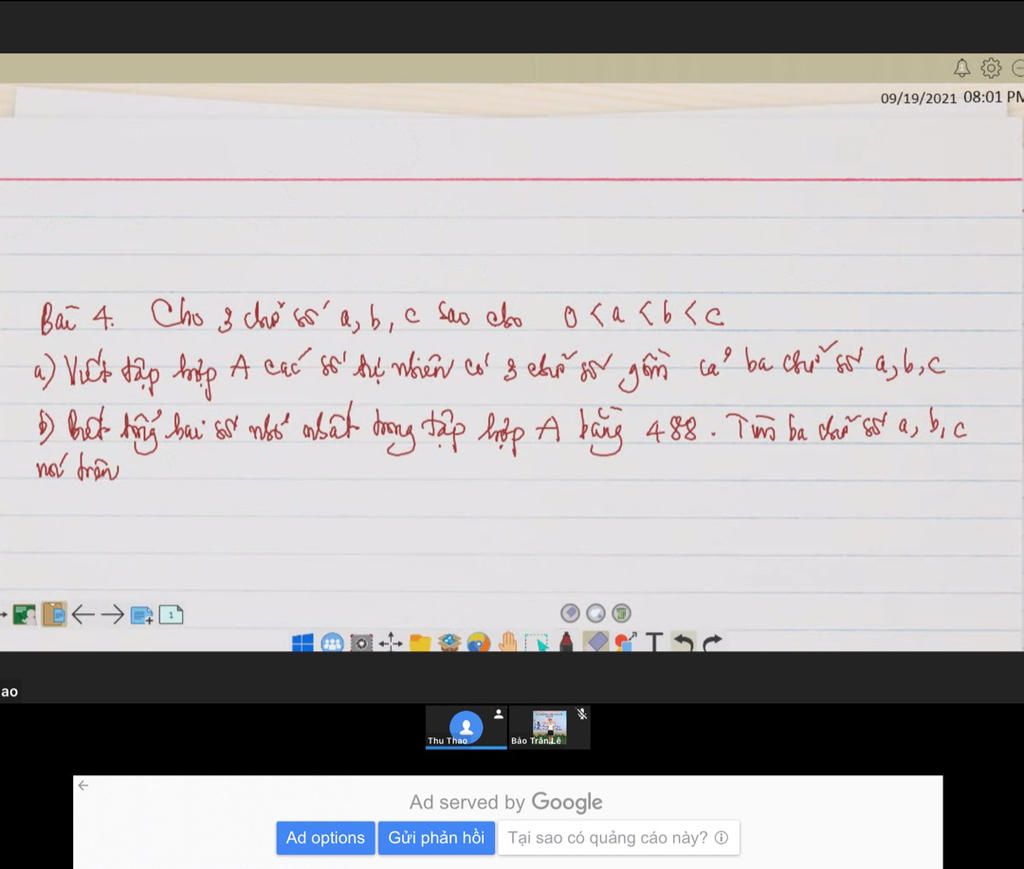 09/19/2021 08:01 PM
Bài 4. Cho 3 chữ số a, b, c sao cho 0 < a < b < c
a) Viết tập hợp A các số tự nhiên có 3 chữ số gồm cả ba chữ số a, b, c
b) Biết tổng hai số nhỏ nhất trong tập hợp A bằng 488. Tìm ba chữ số a, b, c
nói trên
1
T
ao
Thu Thao
Bảo Trân Lê
Ad served by Google
Ad options
Gửi phản hồi
Tại sao có quảng cáo này?